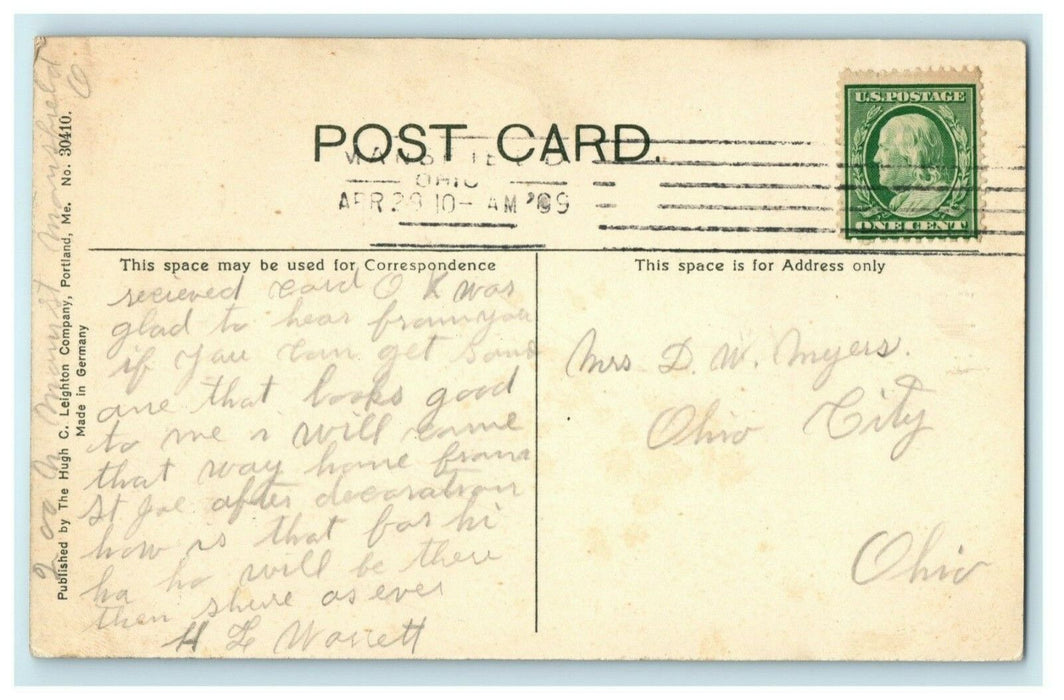 POST CARD.
U.S. POSTAGE
ONE CENT
MANSFIELD
OHIO
APR 29 10- AM '09
This space may be used for Correspondence
This space is for Address only
recieved card O K was
glad to hear from you
if you can get some
one that looks good
to me I will come
that way home from
St Joe after decoration
how is that for hi
ha ha will be there
then shure as ever
H L Worrett
Mrs D. W. Myers.
Ohio City
Ohio
Published by The Hugh C. Leighton Company, Portland, Me. No. 30410.
Made in Germany
200 N Main St Mansfield
O